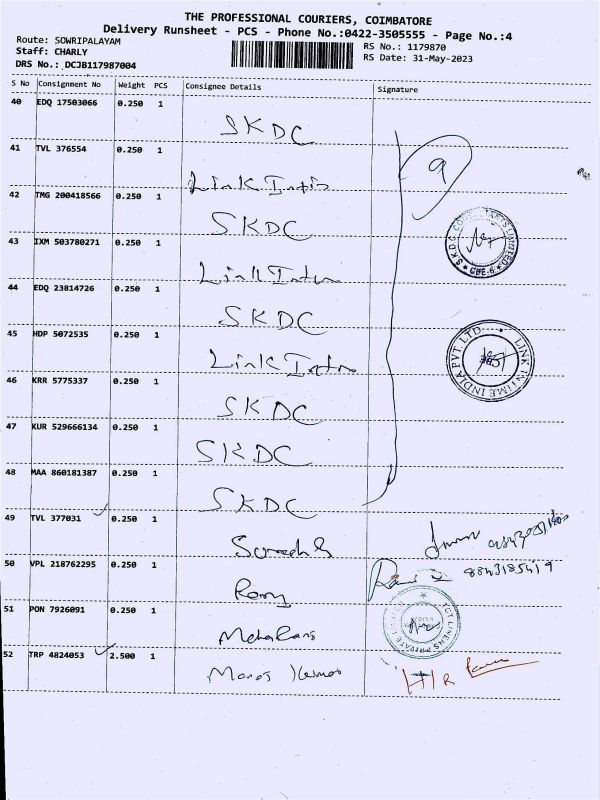 THE PROFESSIONAL COURIERS, COIMBATORE
Delivery Runsheet - PCS - Phone No.:0422-3505555 - Page No.:4
Route: SOWRIPALAYAM
Staff: CHARLY
DRS No.: DCJB117987004
RS No.: 1179870
RS Date: 31-May-2023
S No Consignment No Weight PCS Consignee Details Signature
40 EDQ 17503066 0.250 1
SKDC
41 TVL 376554 0.250 1
9
Link Intis
42 TMG 200418566 0.250 1
SKDC
SKDC CONSULTANTS LIMITED * CBE-6 *
43 IXM 503780271 0.250 1
Link Intim
44 EDQ 23814726 0.250 1
SKDC
45 HDP 5072535 0.250 1
Link Intim
LINK INTIME INDIA PVT LTD
46 KRR 5775337 0.250 1
SKDC
47 KUR 529666134 0.250 1
SKDC
48 MAA 860181387 0.250 1
SKDC
49 TVL 377031 0.250 1
Suresh G
50 VPL 218762295 0.250 1
8843185419
Remy
51 PON 7926091 0.250 1
TCT LINENS PRIVATE LIMITED
52 TRP 4824053 2.500 1
Manoj Kumar
H/R